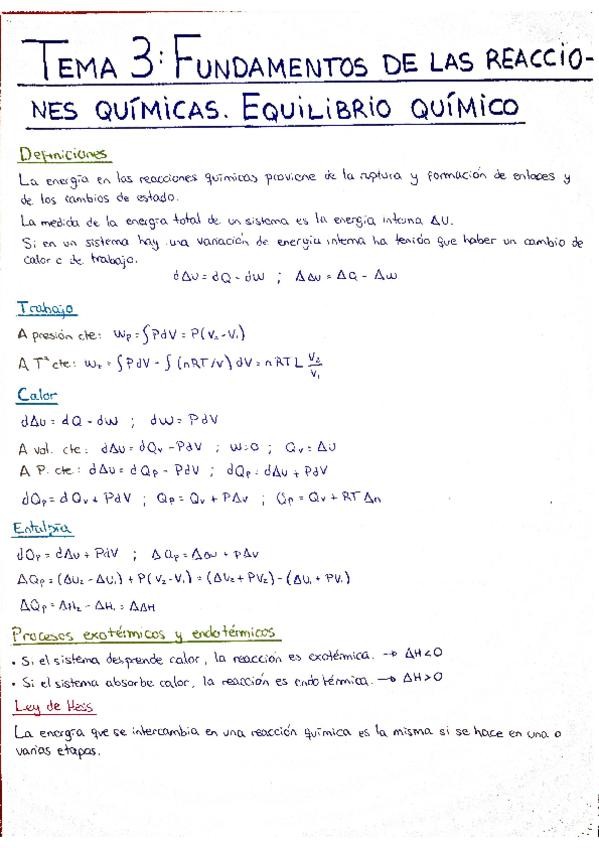 TEMA 3: FUNDAMENTOS DE LAS REACCIO-
NES QUÍMICAS. EQUILIBRIO QUÍMICO
Definiciones
La energía en las reacciones químicas proviene de la ruptura y formación de enlaces y
de los cambios de estado.
La medida de la energía total de un sistema es la energía interna ΔU.
Si en un sistema hay una variación de energía interna ha tenido que haber un cambio de
calor o de trabajo.
dΔU = dQ - dW ; ΔΔU = ΔQ - ΔW
Trabajo
A presión cte: Wp = ∫PdV = P(V₂-V₁)
A Tª cte: W = ∫PdV - ∫(nRT/V) dV = nRT L V₂/V₁
Calor
dΔU = dQ - dW ; dW = PdV
A vol. cte: dΔU = dQv - PdV ; W=0 ; Qv = ΔU
A P. cte: dΔU = dQp - PdV ; dQp = dΔU + PdV
dQp = dQv + PdV ; Qp = Qv + PΔV ; Qp = Qv + RTΔn
Entalpía
dQp = dΔU + PdV ; ΔQp = ΔΔU + PΔV
ΔQp = (ΔU₂ - ΔU₁) + P(V₂-V₁) = (ΔU₂ + PV₂) - (ΔU₁ + PV₁)
ΔQp = ΔH₂ - ΔH₁ = ΔΔH
Procesos exotérmicos y endotérmicos
· Si el sistema desprende calor, la reacción es exotérmica. → ΔH<0
· Si el sistema absorbe calor, la reacción es endotérmica. → ΔH>0
Ley de Hess
La energía que se intercambia en una reacción química es la misma si se hace en una o
varias etapas.